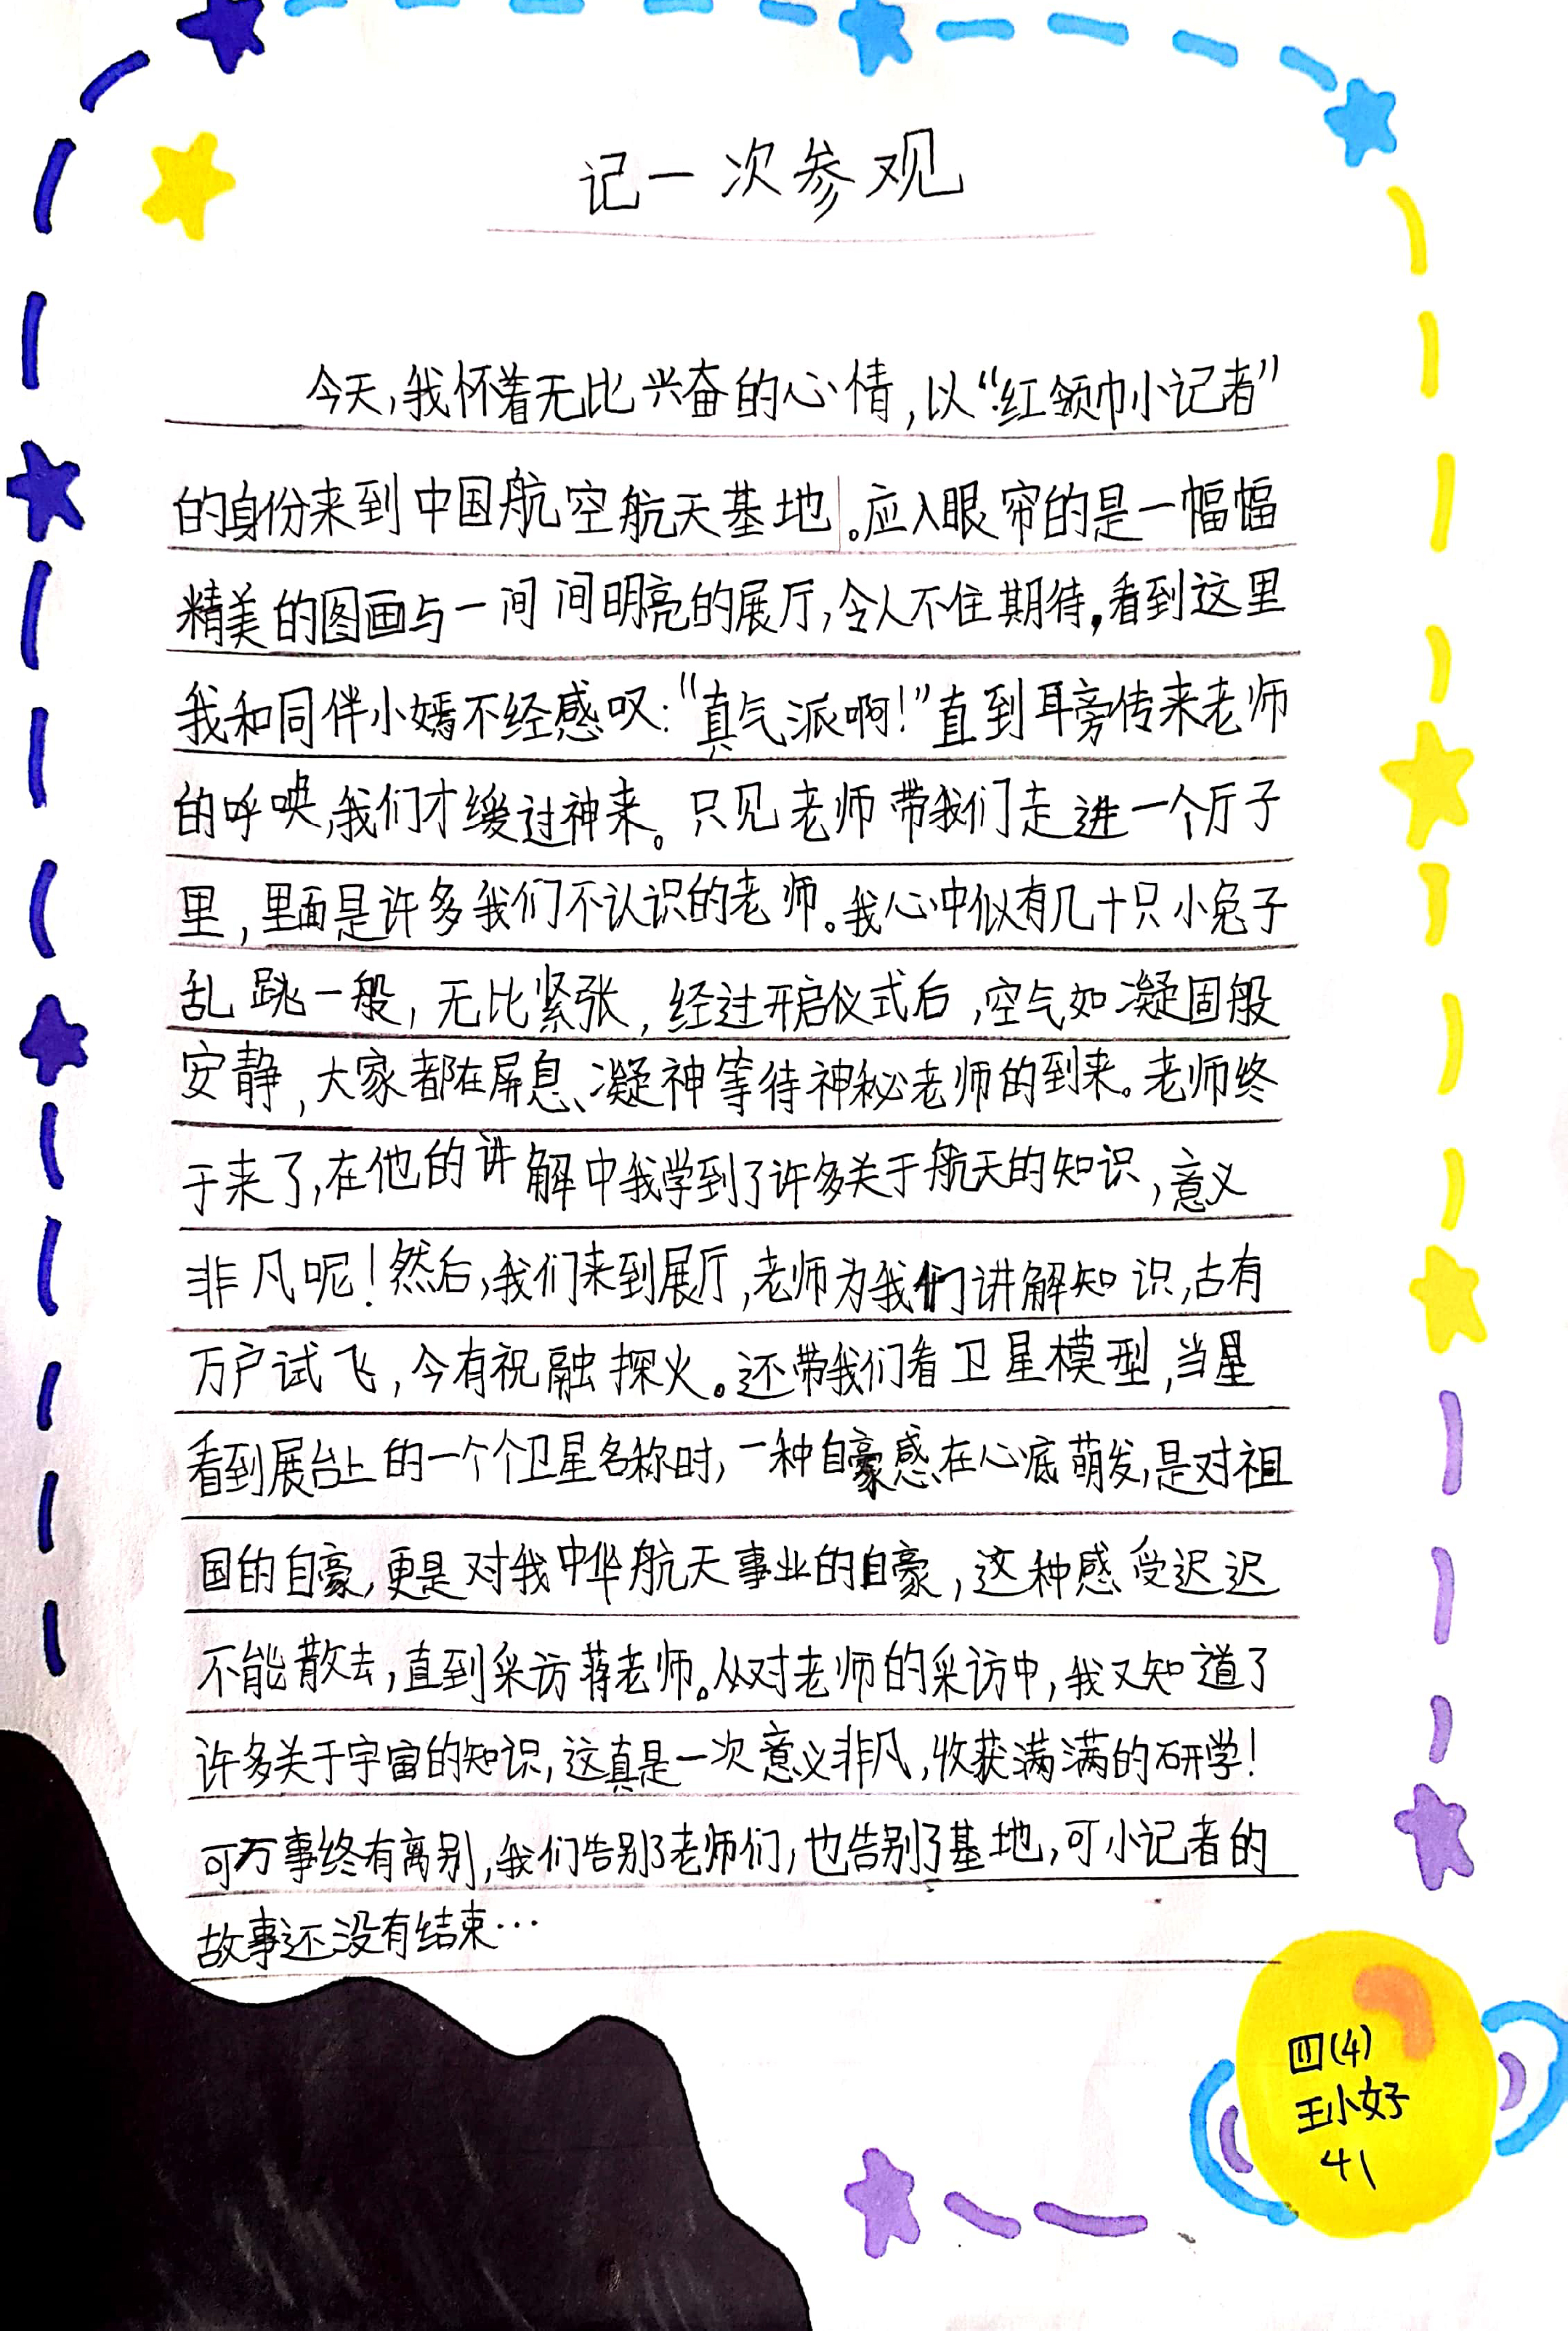 记一次参观
今天,我怀着无比兴奋的心情,以“红领巾小记者”
的身份来到中国航空航天基地。应入眼帘的是一幅幅
精美的图画与一间间明亮的展厅,令人不住期待,看到这里
我和同伴小嫣不经感叹:“真气派啊!”直到耳旁传来老师
的呼唤,我们才缓过神来。只见老师带我们走进一个厅子
里,里面是许多我们不认识的老师。我心中似有几十只小兔子
乱跳一般,无比紧张,经过开启仪式后,空气如凝固般
安静,大家都在屏息、凝神等待神秘老师的到来。老师终
于来了,在他的讲解中我学到了许多关于航天的知识,意义
非凡呢!然后,我们来到展厅,老师为我们讲解知识,古有
万户试飞,今有祝融探火。还带我们看卫星模型,当星
看到展台上的一个个卫星名称时,一种自豪感在心底萌发,是对祖
国的自豪,更是对我中华航天事业的自豪,这种感受迟迟
不能散去,直到采访蒋老师。从对老师的采访中,我又知道了
许多关于宇宙的知识,这真是一次意义非凡,收获满满的研学!
可万事终有离别,我们告别了老师们,也告别了基地,可小记者的
故事还没有结束…
四(4)
王小好
41